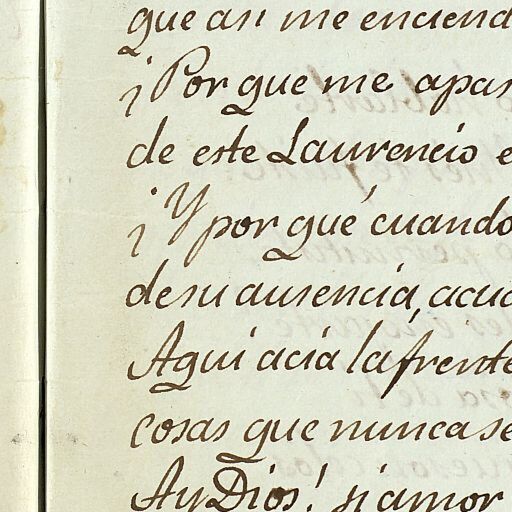 que asi me enciend
¡Por que me apas
de este Laurencio e
¡Y por qué cuando
de su ausencia, acud
Aqui acia la frente
cosas que nunca se
Ay Dios! si amor